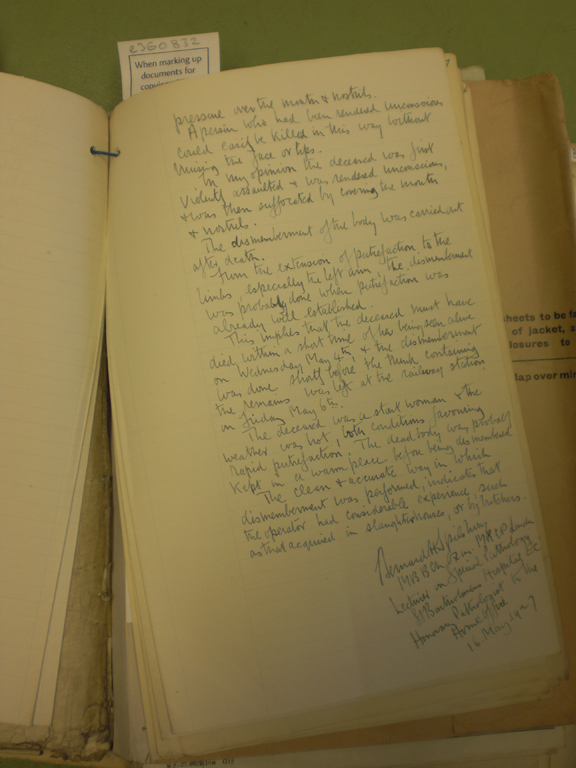 e360832
When marking up
documents for
7
pressure over the mouth & nostrils.
A person who had been rendered unconscious
could easily be killed in this way without
bruising the face or lips.
In my opinion the deceased was first
violently assaulted & was rendered unconscious,
& was then suffocated by covering the mouth
& nostrils.
The dismemberment of the body was carried out
after death.
From the extension of putrefaction to the
limbs, especially the left arm, the dismemberment
was probably done when putrefaction was
already well established.
This implies that the deceased must have
died within a short time of her being seen alive
on Wednesday May 4th, & the dismemberment
was done shortly before the trunk containing
the remains was left at the railway station
on Friday May 6th.
The deceased was a stout woman & the
weather was hot, both conditions favouring
rapid putrefaction. The dead body was probably
kept in a warm place before being dismembered
The clean & accurate way in which
dismemberment was performed, indicates that
the operator had considerable experience such
as that acquired in slaughterhouses, or by butchers.
Bernard H. Spilsbury
MB B Ch Oxon MRCP London
Lecturer on Special Pathology
St Bartholomews Hospital EC
Honorary Pathologist to the
Home Office
16 May 1927
sheets to be fa
of jacket, a
closures to
lap over